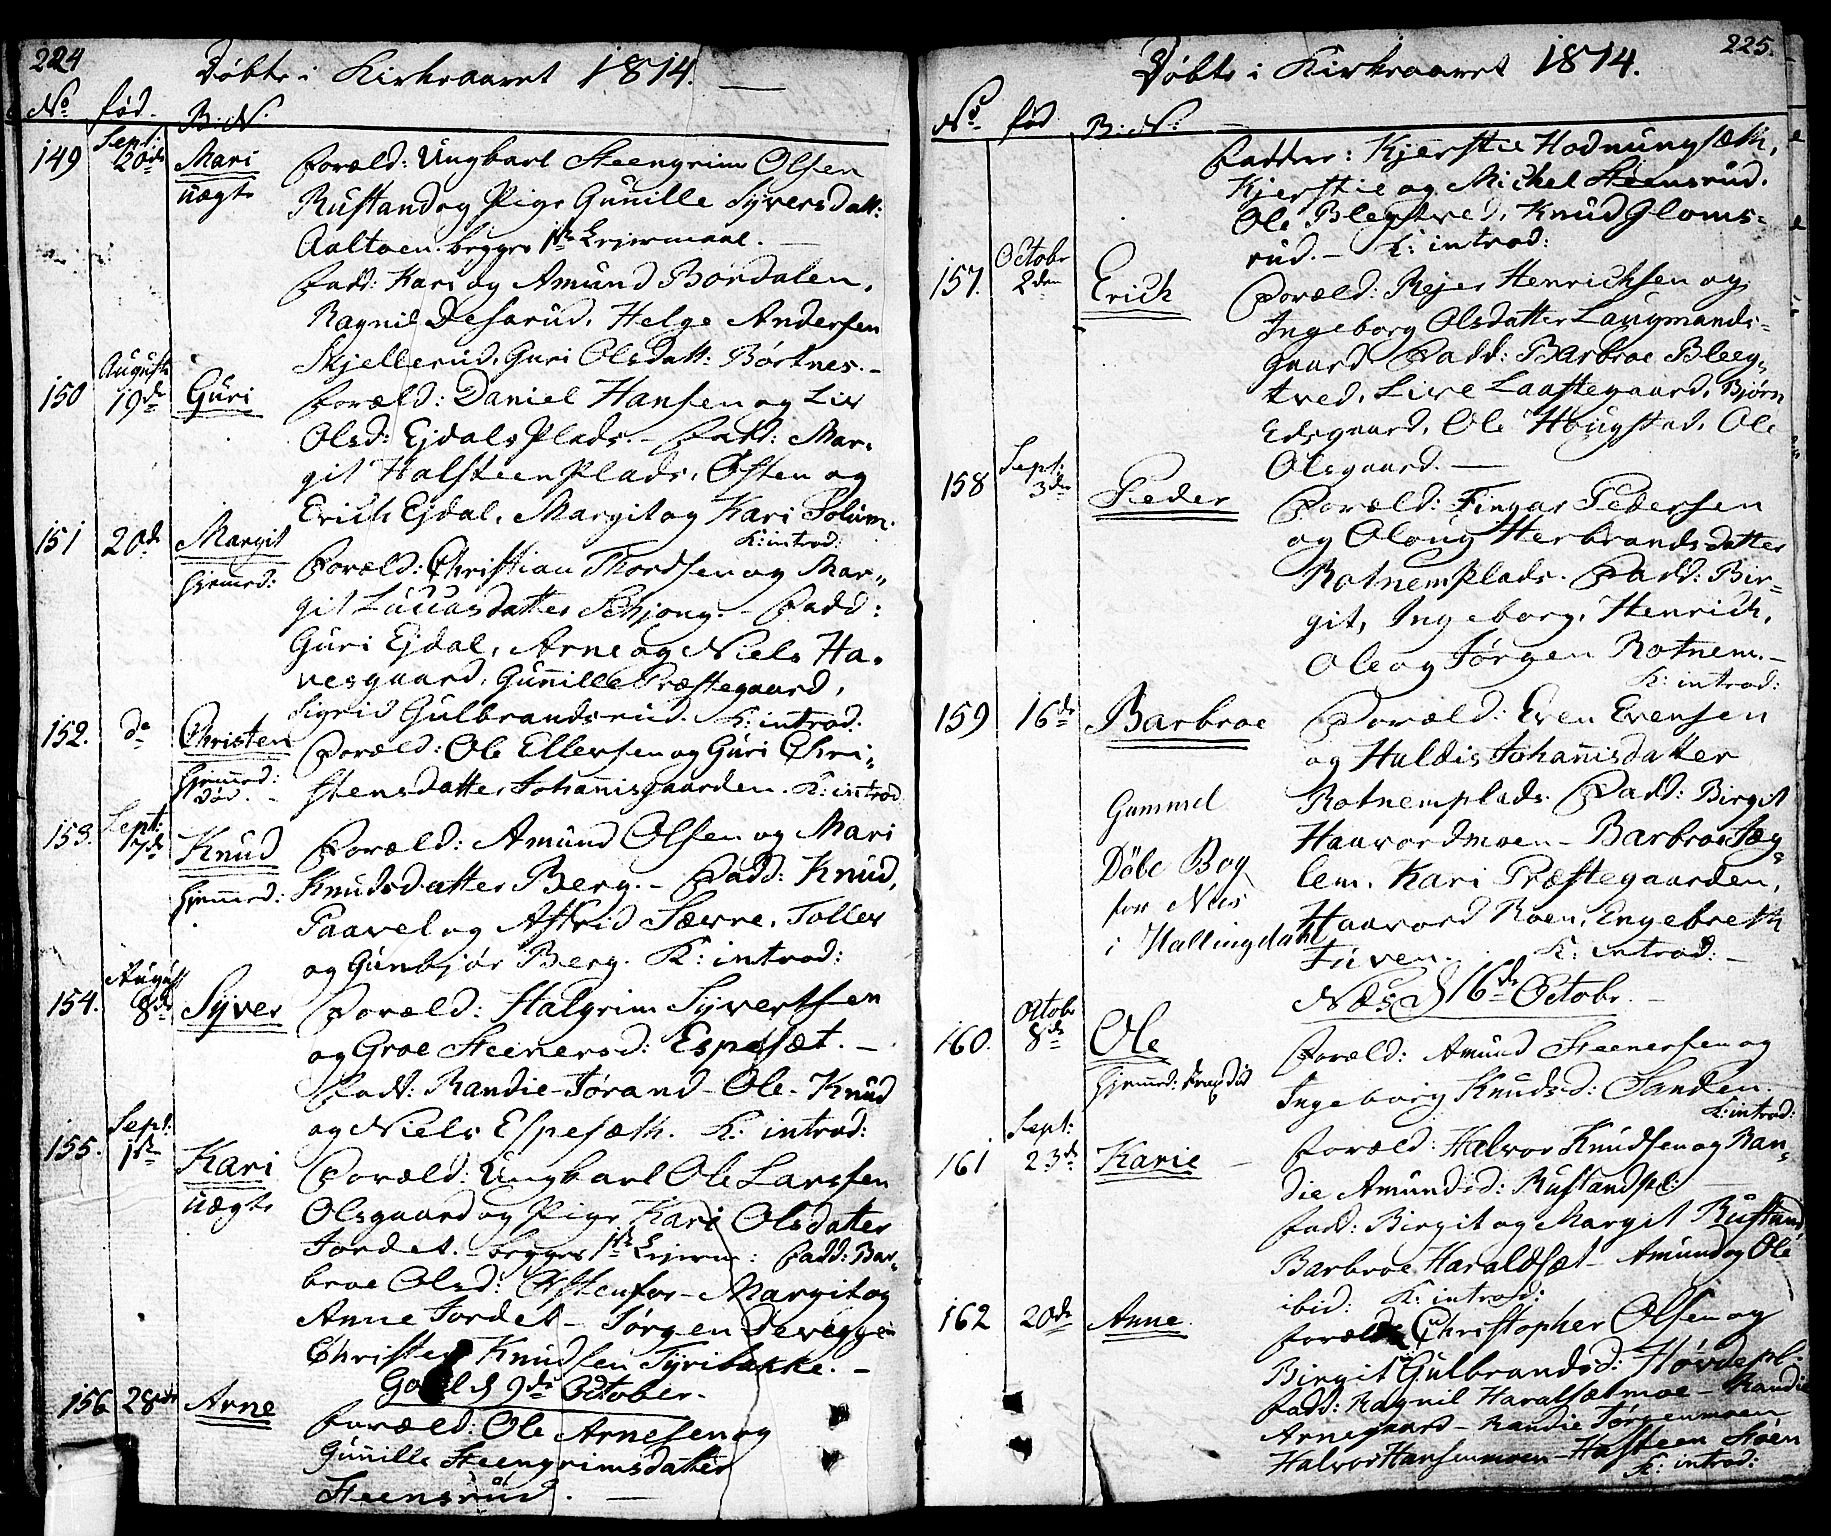 224
Döbte i Kirkeaaret 1814.
No. fød. B: N.
149 Sept: 20de Mari uægte
Foræld: Ungkarl Steengrim Olsen
Rustand og Pige Gunille Syversdatt:
Aaltoen. begges 1ste Lejermaal. —
Fadd: Kari og Amund Bordalen,
Ragnil Desarud, Helge Andersen
Skjellerud, Guri Olsdatt: Børtnes. —
150 August 19de Guri
Foræld: Daniel Hansen og Liv
Olsd: Ejdals Plads. — Fadd: Mar-
git Halsteen Plads, Østen og
Erich Ejdal, Margit og Kari Solum.
K: introd:
151 20de Margit Hjemmed:
Foræld: Christian Thordsen og Mar-
git Luccasdatter Schjong. — Fadd:
Guri Ejdal, Arne og Niels Ha-
vesgaard, Gunille Præstegaard,
Sigrid Gulbrandsrud. K: introd:
152. do Christen Hjemmed: Død. -
Foræld: Ole Ellevsen og Guri Chri-
stensdatter Johannisgaarden. K: introd
153. Sept: 7de Knud Hjemmed:
Foræld: Amund Olsen og Mari
Knudsdatter Berg. — Fadd: Knud,
Paavel og Astrid Sævre, Tollev
og Gunbjør Berg. K: introd:
154. August 8de Syver
Foræld: Halgrim Syvertsen
og Groe Steenersd: Espesæt. —
Fadd: Randie - Jørand - Ole - Knud
og Niels Espesæth. K: introd:
155. Sept: 1ste Kari uægte
Foræld: Ungkarl Ole Larssen
Olsgaard og Pige Kari Olsdatter
Jordet. begges 1ste Lejerm: Fadd: Bar-
broe Olsd: Østenfor - Margit og
Anne Jordet - Jørgen Deveggen
Christen Knudsen Tyribakke. —
Goel d 9de October.
156 28de Arne
Foræld: Ole Arnesen og
Gunille Steengrimsdatter
Steensrud. —
225.
Döbte i Kirkeaaret 1814.
No. fød B: N:
Faddere: Kjerstie Hodnungsæth,
Kjerstie og Michel Steensrud,
Ole Blegstved, Knud Gloms-
rud. — K: introd:
157. Octobr 2den Erich
Foræld: Rejer Henrichsen og
Ingeborg Olsdatter Laugmands-
gaard Fadd: Barbroe Bleeg-
tved, Live Laastegaard, Bjørn
Edsgaard, Ole Haugstad, Ole
Olsgaard. —
158 Sept: 3die Peder
Foræld: Fingar Pedersen
og Aloug Herbrandsdatter
Rotnemplads. Fadd: Bir-
git, Ingeborg, Henrich,
Ole og Jørgen Rotnem. —
K: introd:
159 16de Barbroe
Foræld: Even Evensen
og Haldis Johannisdatter
Rotnemplads Fadd: Birgit
Haavordmoen - Barbroe Sæg-
lem, Kari Præstegaarden,
Haavord Roen, Engebreth
Tuven. K: introd: —
Gammel
Døbe Bog
for Næs
i Hallingdahl
Næs d 16de Octobr. —
160. Octobr 8de Ole Hjemmed:
Foræld: Amund Steenersen og
Ingeborg Knudsd: Sanden. —
K: introd:
161 Sept: 23de Karie —
Foræld: Halvor Knudsen og Ran-
die Amundsd: Rustandpl:
Fadd: Birgit og Margit Rustand
Barbroe Haraldsæt - Amund og Ole
ibid: K: introd:
162 20de Anne
Foræld: Christopher Olsen og
Birgit Gulbrandsd: Hovdepl.
Fadd: Ragnil Haralsætmoe - Randie
Arnegaard - Randie Jørgenmoen
Halvor Hansenmoen - Halsteen Støen
K: introd: